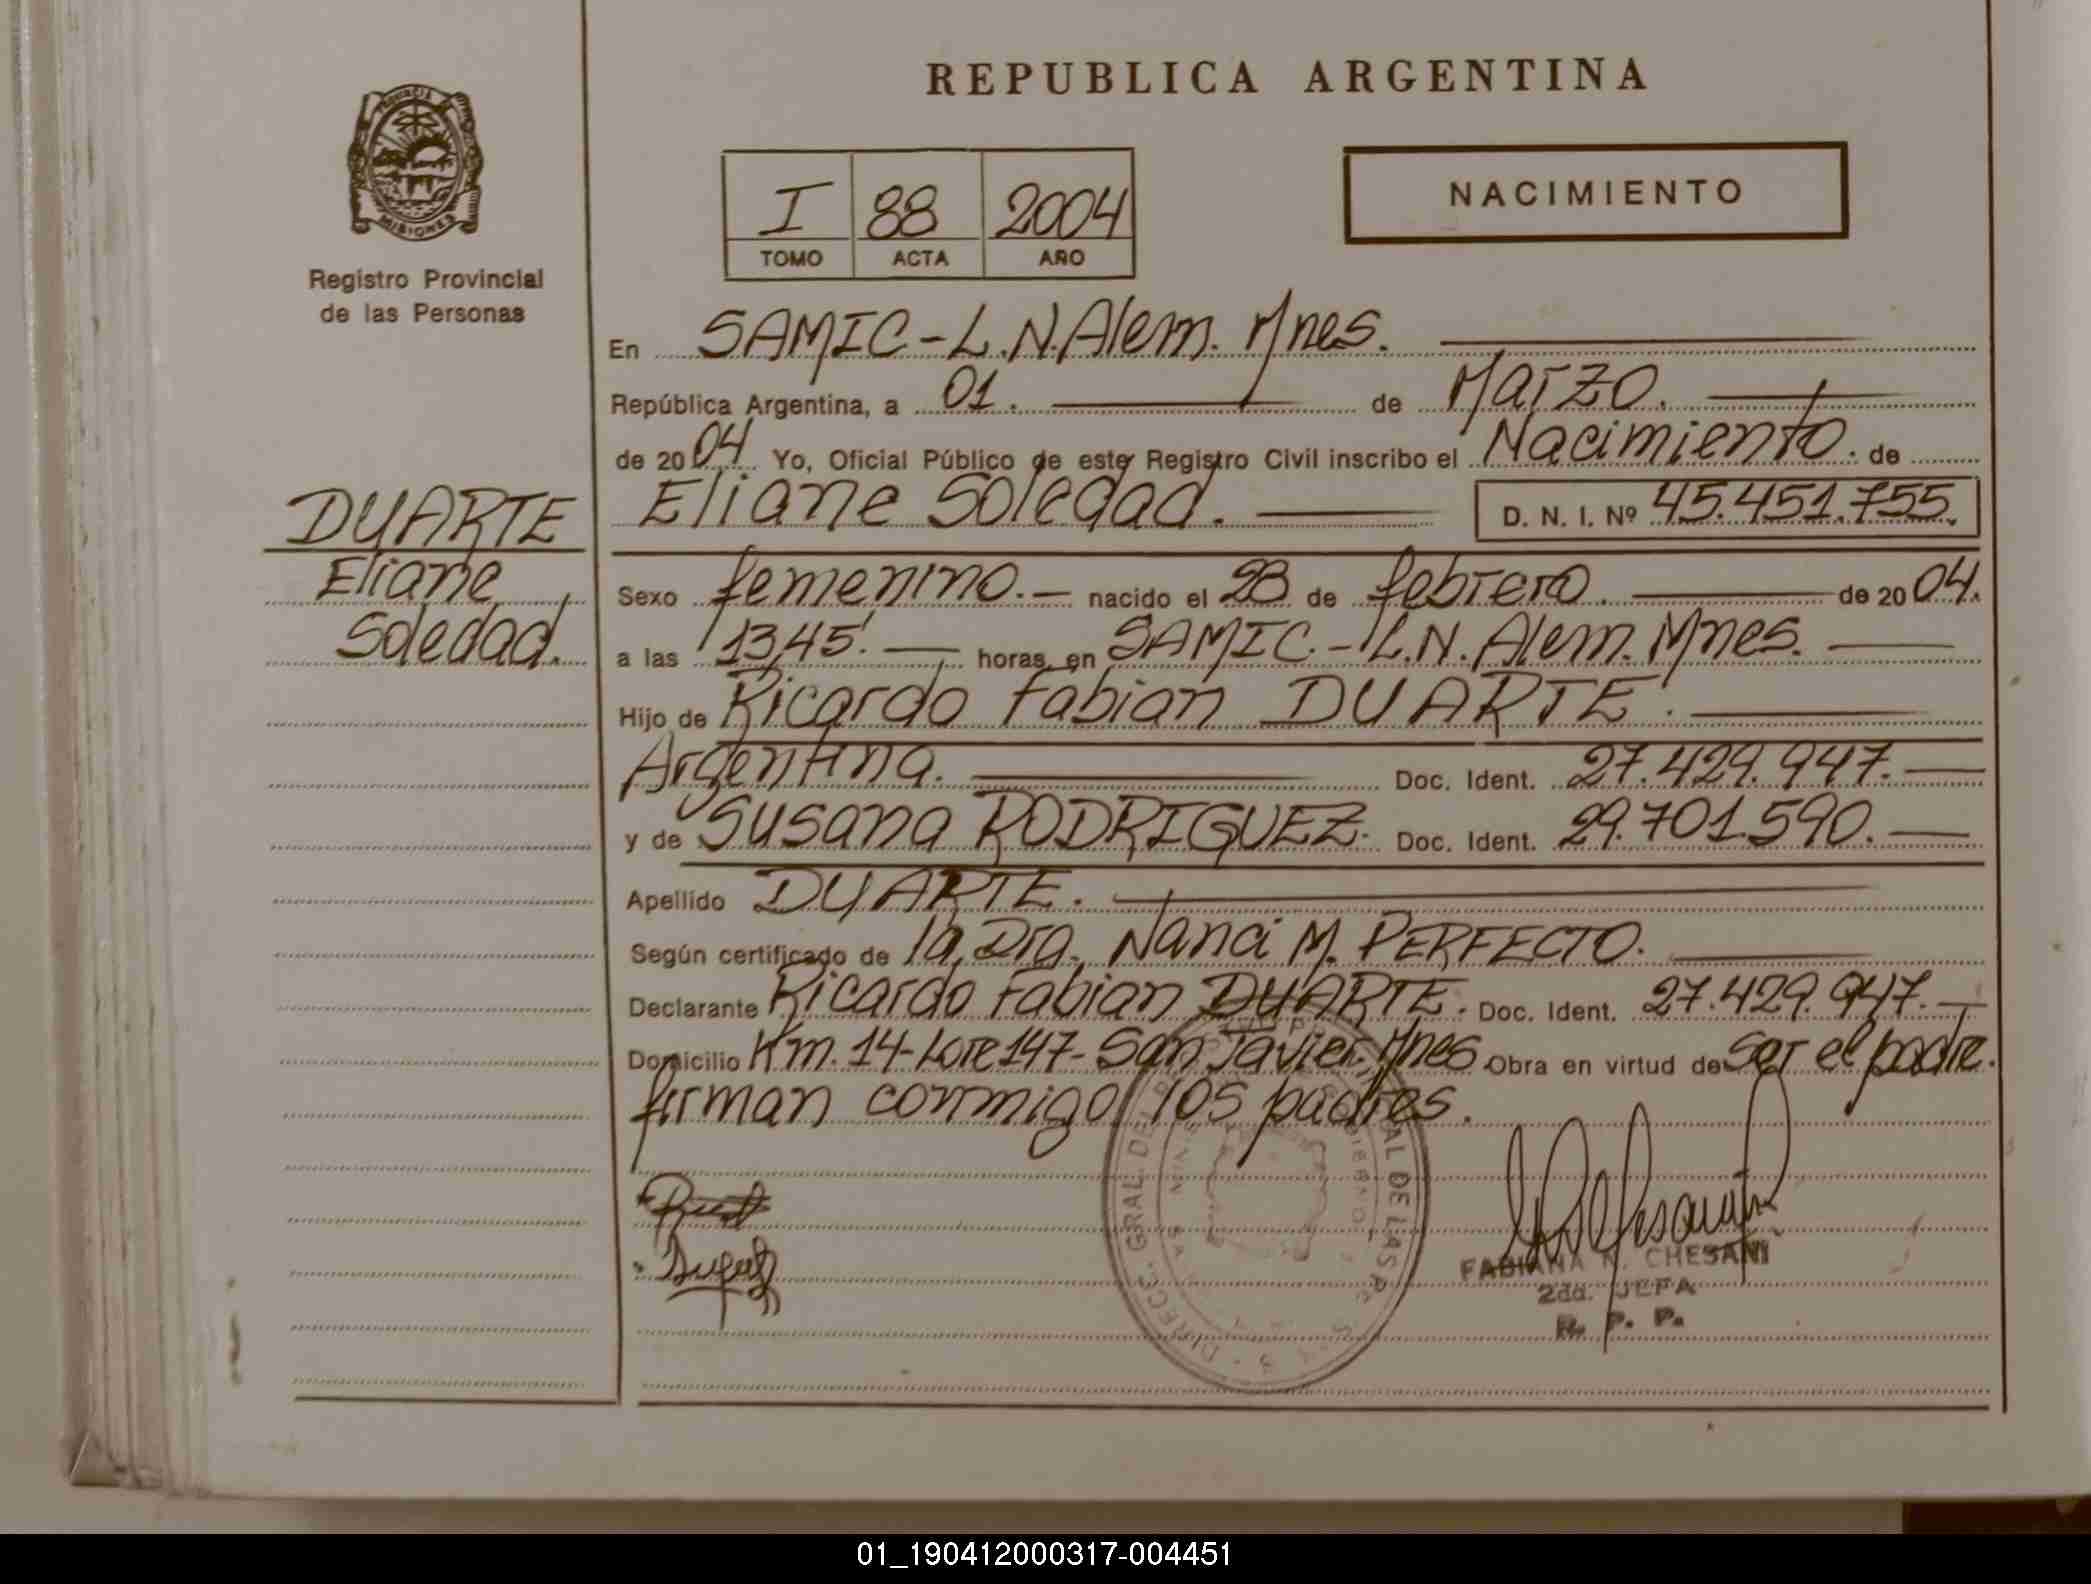 REPUBLICA ARGENTINA
PROVINCIA DE MISIONES
Registro Provincial
de las Personas
I 88 2004
TOMO ACTA AÑO
NACIMIENTO
En SAMIC-L.N.Alem. Mnes.
República Argentina, a 01. de Marzo.
de 2004 Yo, Oficial Público de este Registro Civil inscribo el Nacimiento. de
Eliane Soledad. D. N. I. Nº 45.451.755.
DUARTE
Eliane
Soledad.
Sexo femenino.- nacido el 28 de febrero. de 2004.
a las 13,45'. horas, en SAMIC.-L.N.Alem. Mnes.
Hijo de Ricardo Fabian DUARTE.
Argentina. Doc. Ident. 27.429.947.
y de Susana RODRIGUEZ. Doc. Ident. 29.701.590.
Apellido DUARTE.
Según certificado de la Dra. Nanci M. PERFECTO.
Declarante Ricardo Fabian DUARTE. Doc. Ident. 27.429.947.
Domicilio Km. 14-Lote 147- San Javier. Mnes. Obra en virtud de ser el padre.
firman conmigo los padres.
FABIANA N. CHESANI
2da. JEFA
R. P. P.
01_190412000317-004451